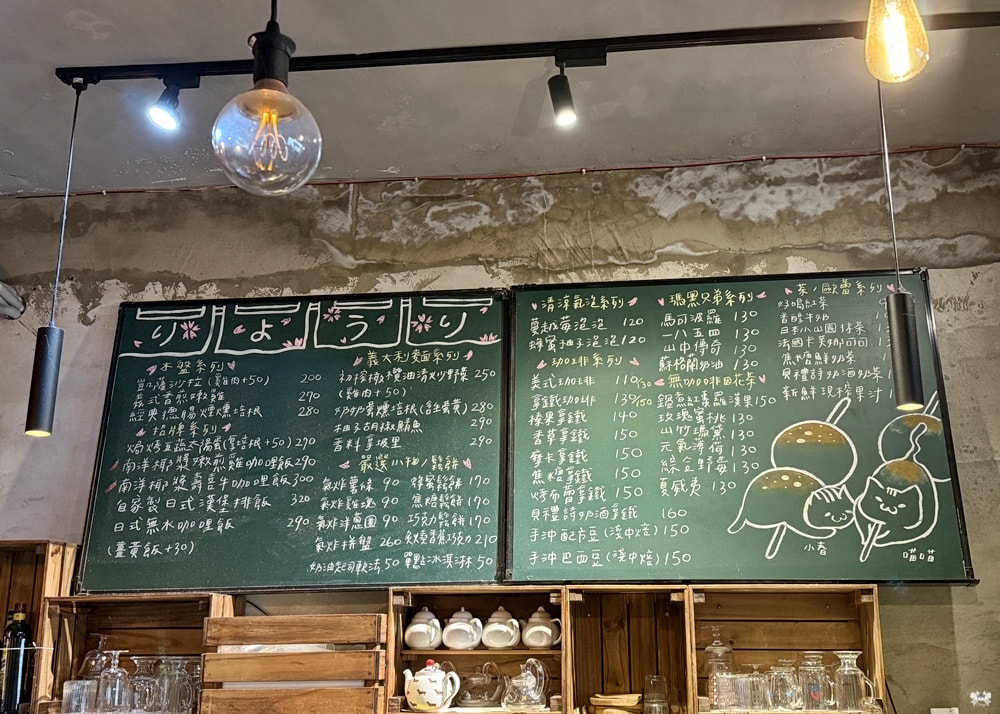 りょうり
木盤系列
凱薩沙拉(雞肉+50) 200
義式香煎嫩雞 290
經典德腸煙燻培根 280
招牌系列
焗烤豆蔬太陽蛋(厚培根+50) 290
南洋椰漿嫩煎雞咖哩飯 290
南洋椰漿壽喜牛咖哩飯 300
自家製日式漢堡排飯 320
日式無水咖哩飯 290
(薑黃飯+30)
義大利麵系列
初榨橄欖油清炒野菜 250
(雞肉+50)
奶奶蛋燻培根(含生蛋黃) 280
柚子胡椒鮪魚 290
香料拿坡里 290
嚴選小物/鬆餅
氣炸薯條 90 蜂蜜鬆餅 170
氣炸雞塊 90 焦糖鬆餅 190
氣炸洋蔥圈 90 巧克力鬆餅 190
氣炸拼盤 260 炙燒香蕉巧克力 210
奶油起司軟法 50 單點冰淇淋 50
清涼氣泡系列
蔓越莓泡泡 120
蜂蜜柚子泡泡 120
咖啡系列
美式咖啡 110/130
拿鐵咖啡 135/150
榛果拿鐵 140
香草拿鐵 150
摩卡拿鐵 150
焦糖拿鐵 150
烤布蕾拿鐵 150
貝禮詩奶酒拿鐵 160
手沖配方豆(淺中焙) 150
手沖巴西豆(淺中焙) 150
瑪黑兄弟系列
馬可波羅 130
一八五四 130
山中傳奇 130
蘇格蘭奶油 130
無咖啡因花茶
鍋煮紅棗羅漢果 150
玫瑰蜜桃 130
山竹瑪黛 130
元氣薄荷 130
綜合野莓 130
夏威夷 130
茶/歐蕾系列
好喝紅茶
香醇牛奶
日本小山園抹茶
法國卡芙卡可可
焦糖鮮奶茶
貝禮詩奶酒奶茶
新鮮現榨果汁
小春
喵喵